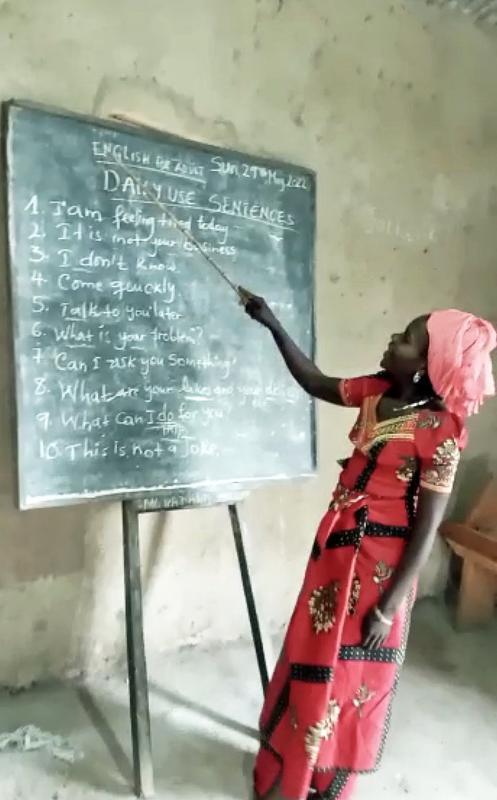 ENGLISH FOR ADULT Sun, 29th May 2022
DAILY USE SENTENCES
1. I am feeling tired today
2. It is not your business
3. I don't know
4. Come quickly
5. Talk to you later
6. What is your problem?
7. Can I ask you something?
8. What are your and your
9. What Can I do for you
10. This is not a Joke.